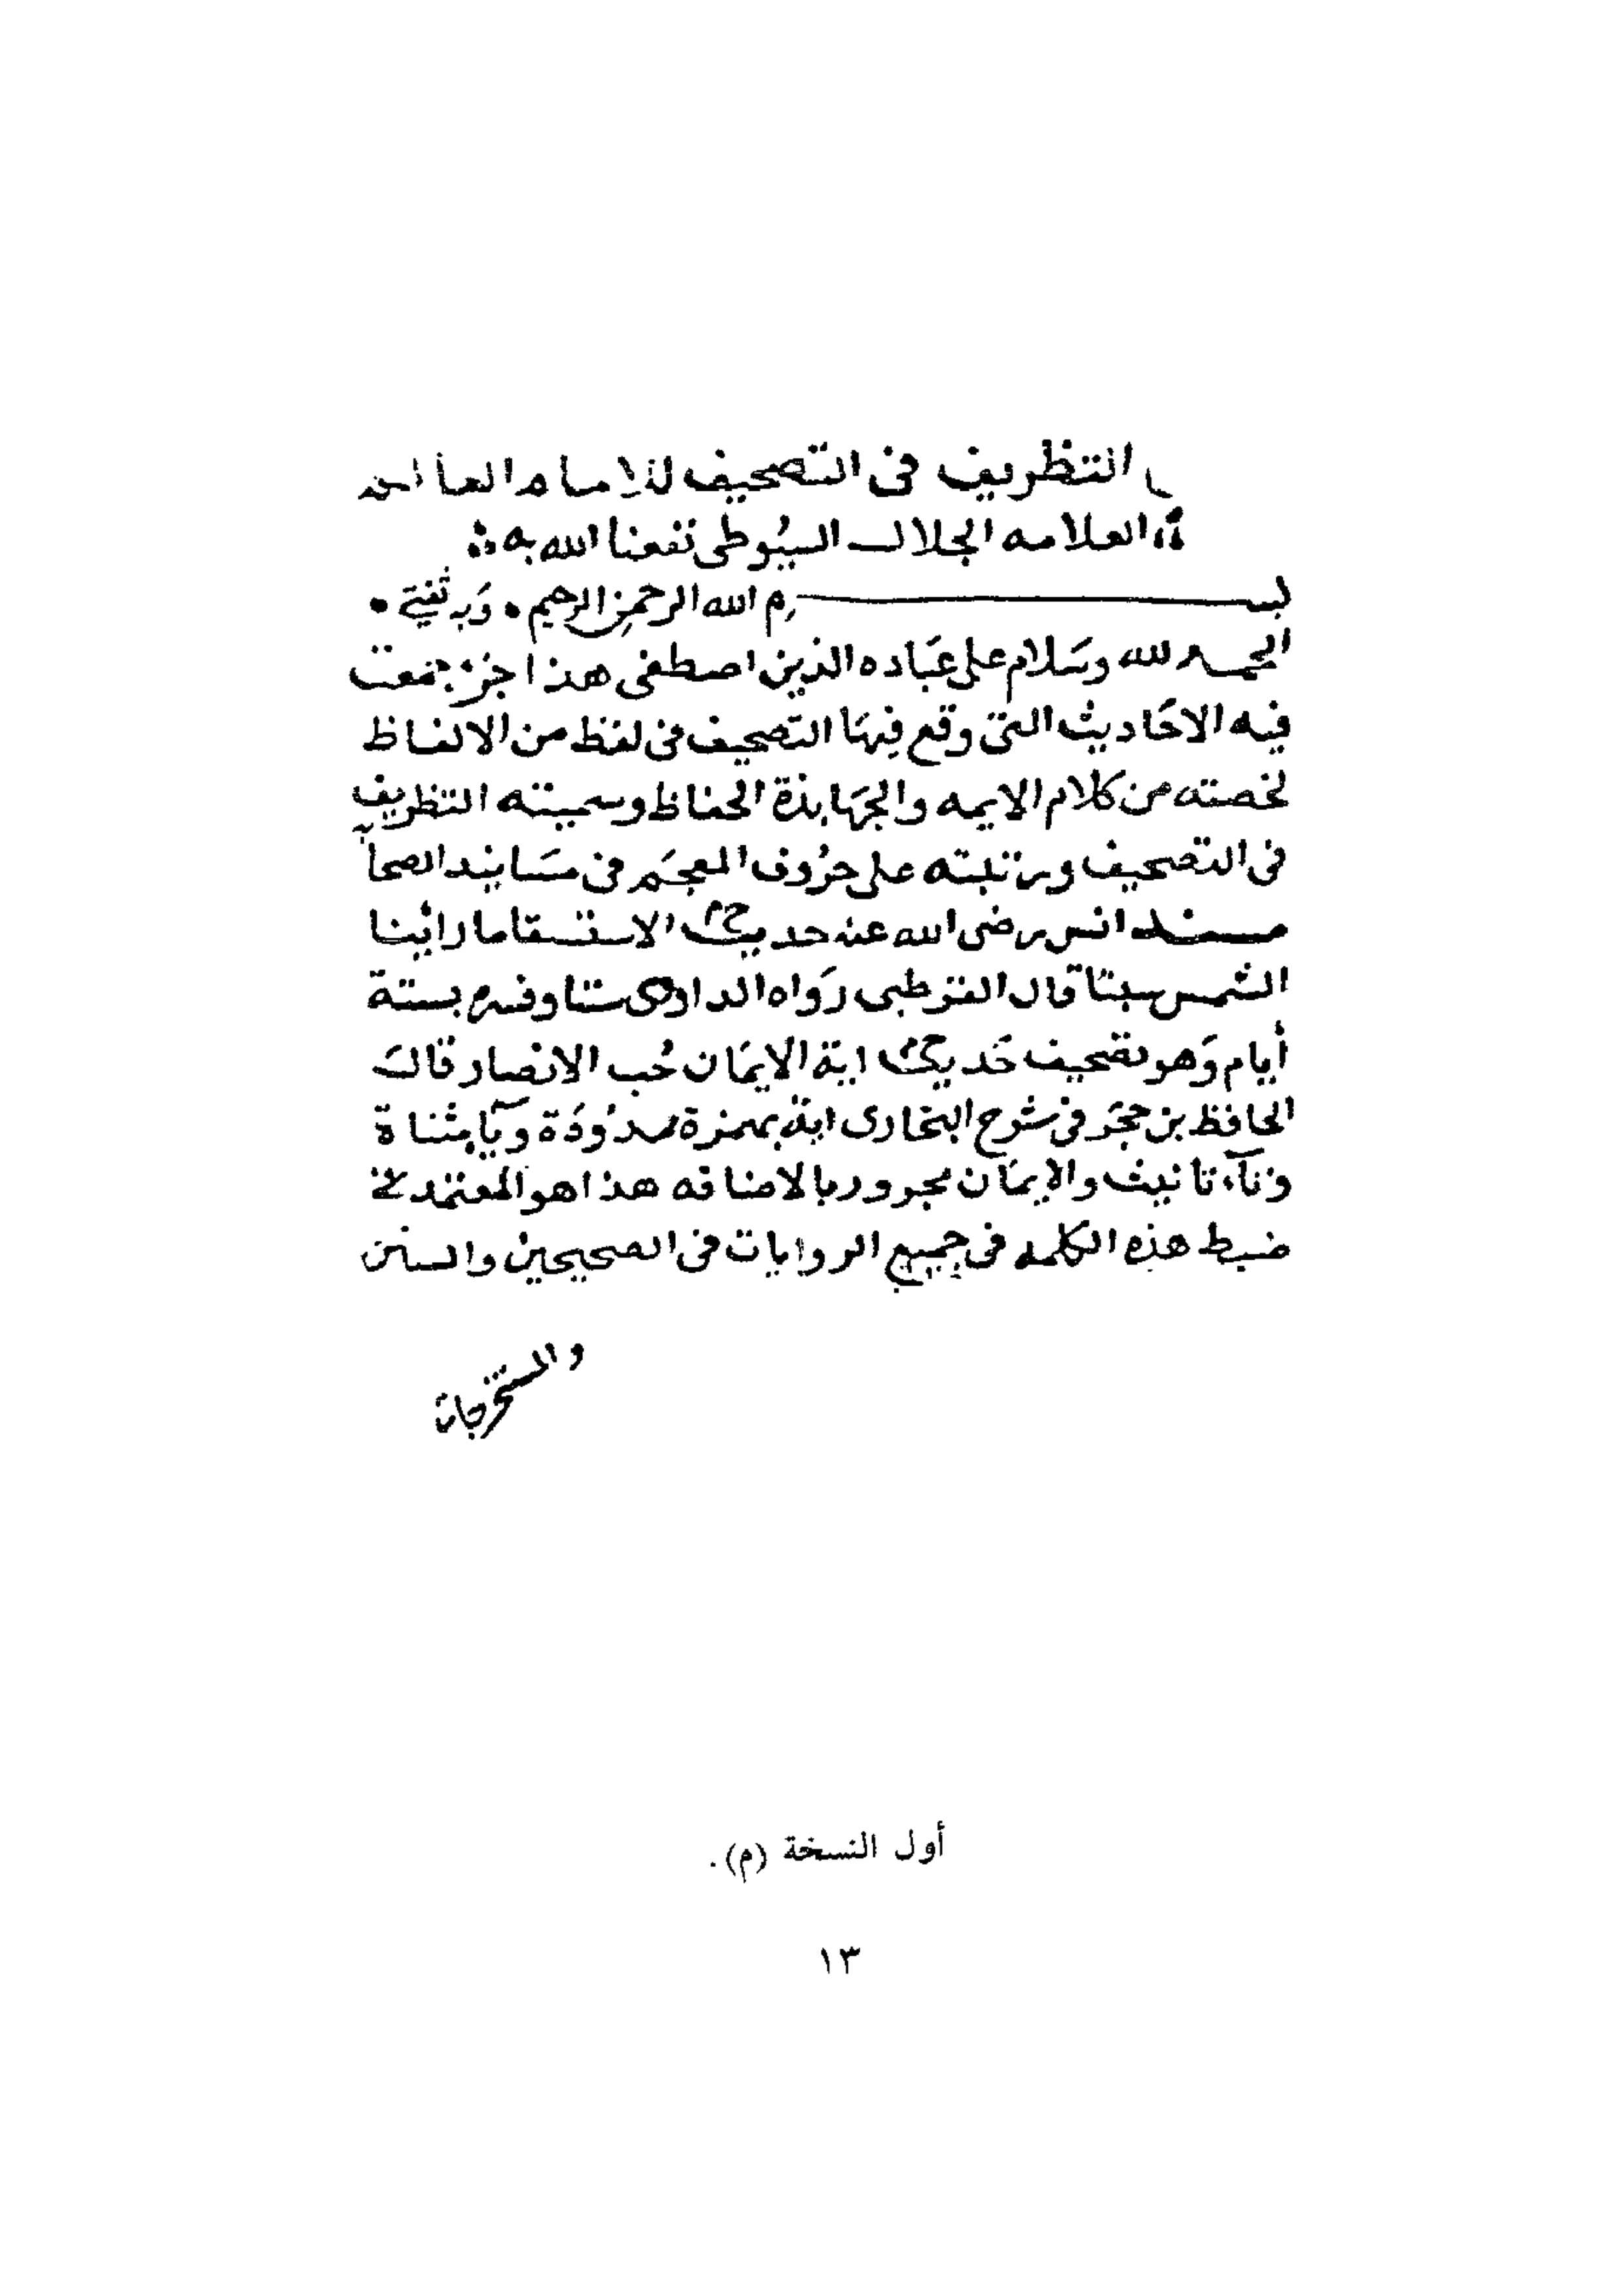 التظريف في التصحيف للامام العالم
العلامه الجلال السيُوطى نفعنا الله به
بسم الله الرحمن الرحيم . وَبه ثقتي .
الحمد لله وسَلام على عبَاده الذين اصطفى هذا جزء جمعت
فيه الاحَاديث التي وقع فيهَا التصحيف في لفظ من الالفاظ
لخصته من كلام الايمه والجهَابذة الحفاظ وسميته التظريف
في التصحيف ورتبته على حرُوف المعجَم في مسَانيد الصحا
مسند انس رضى الله عنه حديث الاستسقا ما رائينا
الشمس سبتا قال القرطبى رَواه الداودى ستا وفسره بستة
أيام وَهو تصحيف حَديث اية الايمَان حُب الانصار قالَ
الحافظ بن حجَر في شرح البخارى اية بهمزة ممدُودَة ويآ مثناة
وتآء تانيث والايمَان مجرور بالاضافه هذا هو المعتمد في
ضبط هذه الكلمه في جميع الروايات في الصحيحين والسنن
والمستخرجات
أول النسخة (م).
١٣